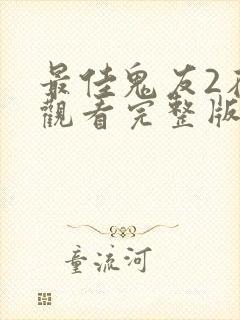 最佳鬼友2
觀看完整版
童流河